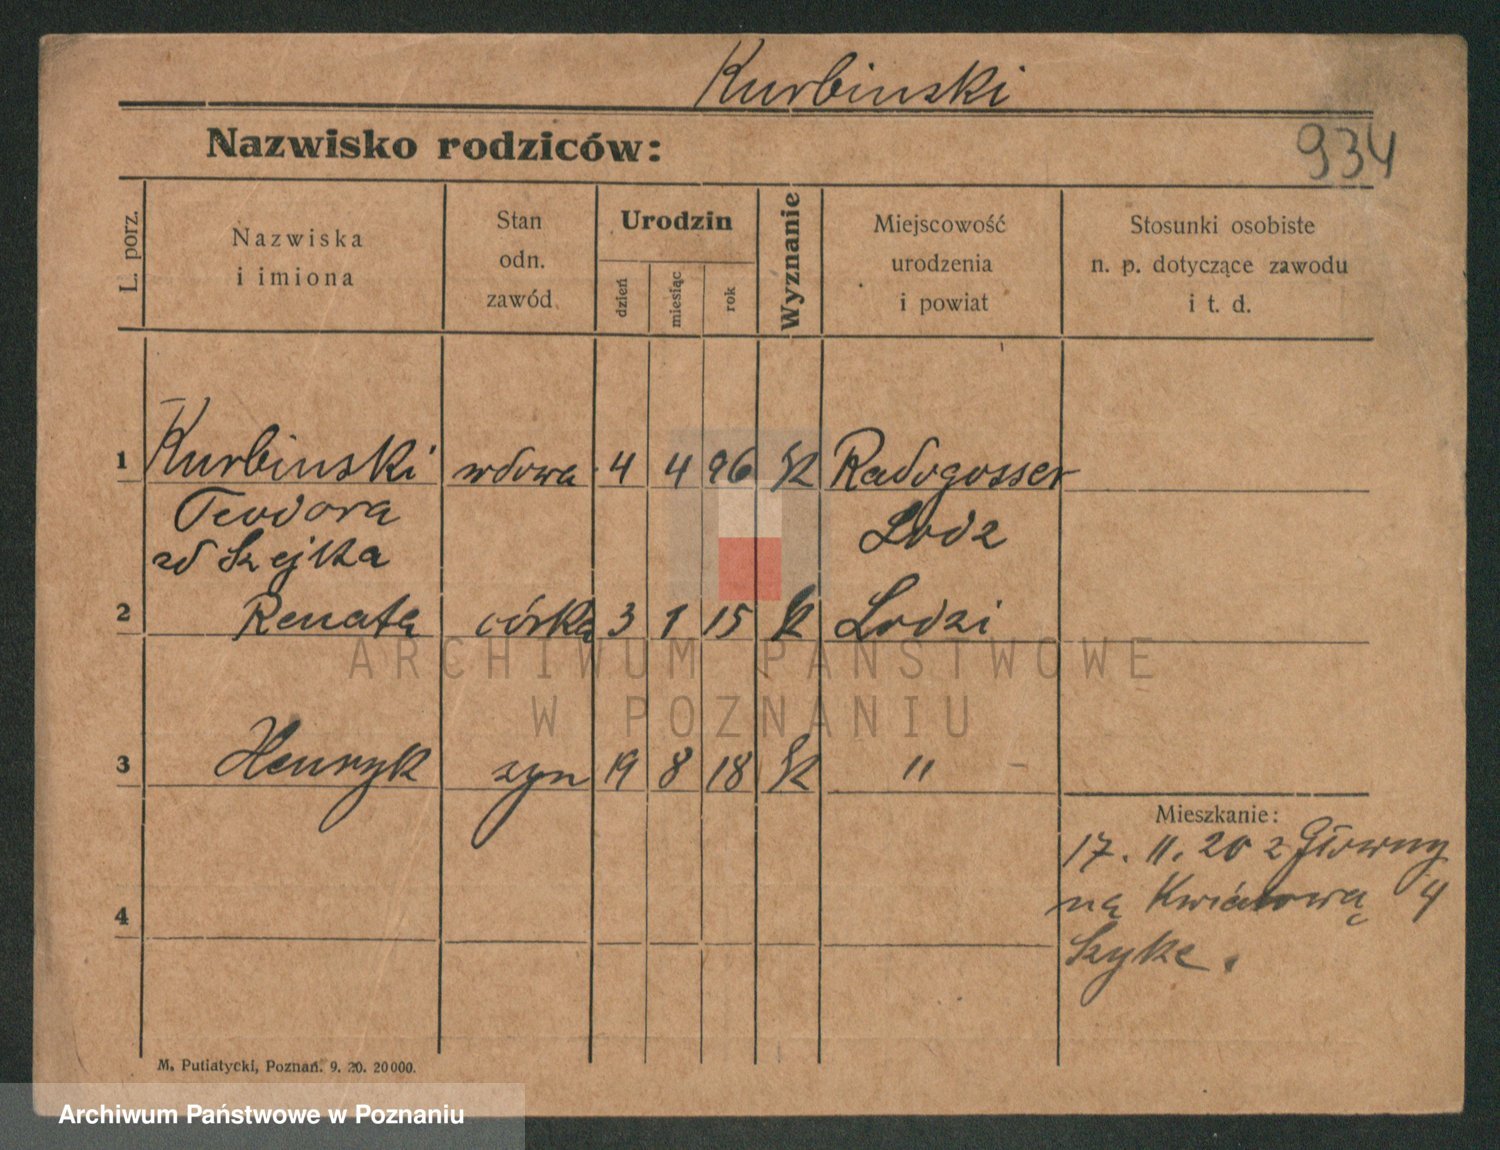 Kurbinski
Nazwisko rodziców:
934
L. porz.
Nazwiska
i imiona
Stan
odn.
zawód
Urodzin
dzień
miesiąc
rok
Wyznanie
Miejscowość
urodzenia
i powiat
Stosunki osobiste
n. p. dotyczące zawodu
i t. d.
1 Kurbinski wdowa 4 4 96 Radogosser
Teodora Lodz
zd Szejka
2 Renata córka 3 1 15 Lodzi
3 Henryk syn 19 8 18 "
Mieszkanie:
17. 11. 20 z Głowny
4 na Kwiatową 4
Szyke.
ARCHIWUM PAŃSTWOWE
W POZNANIU
M. Putiatycki, Poznań. 9. 20. 20000.
Archiwum Państwowe w Poznaniu